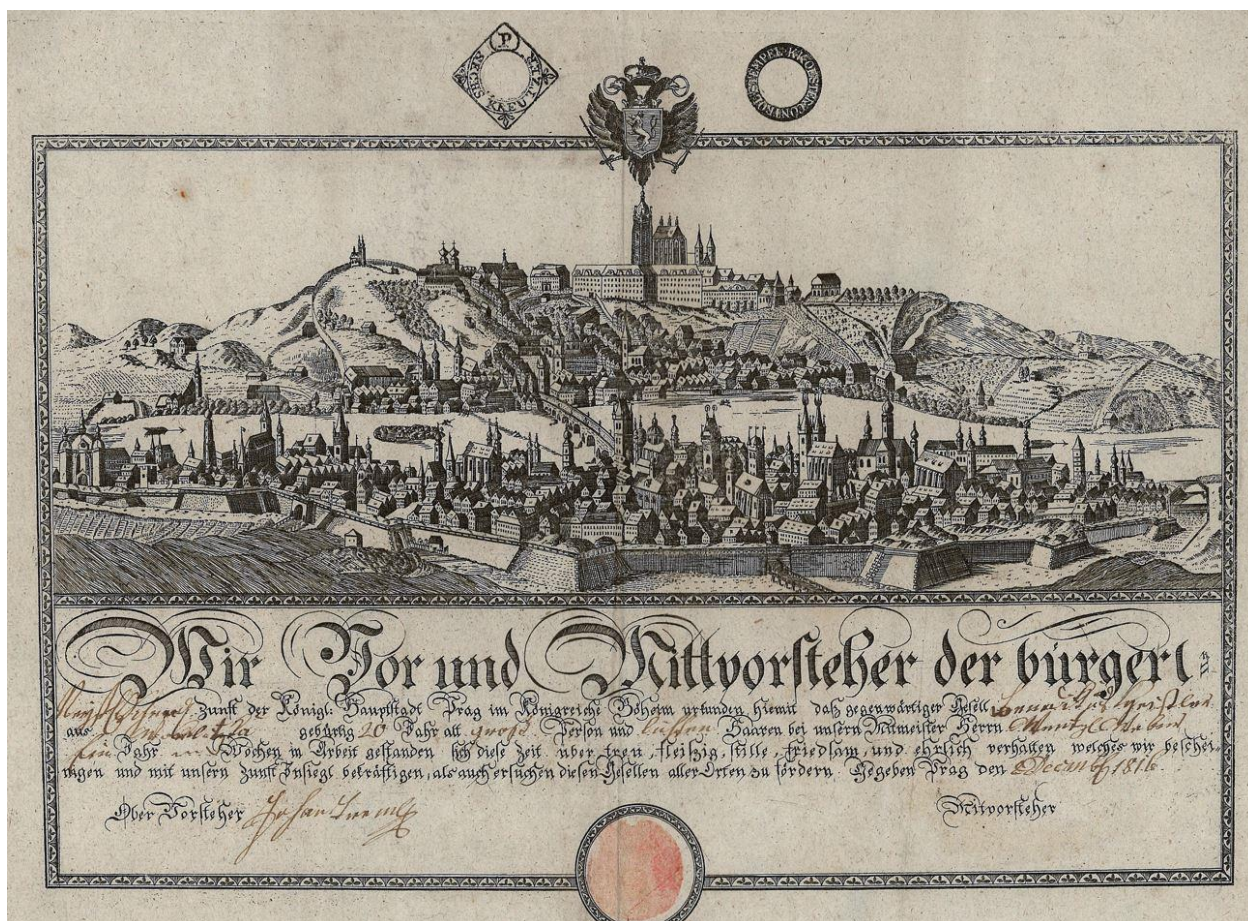 P
SECHS KREUTZER
K:K:OESTER:CONTROLE STEMPEL
Wir Vor und Mittvorsteher der bürgerl:
Zunft der Königl: Hauptstadt Prag im Königreiche Böheim urkunden hiemit daß gegenwärtiger Gesell
aus gebürtig 20 Jahr alt groß Person und Haaren bei unsern Mitmeister Herrn
Jahr Wochen in Arbeit gestanden sich diese Zeit über treu, fleißig, stille, friedsam, und ehrlich verhalten welches wir beschei
nigen und mit unsern Zunft Insiegl bekräftigen, als auch ersuchen diesen Gesellen aller Orten zu fördern. Gegeben Prag den Decemb 1816
Ober Vorsteher Johan
Mitvorsteher